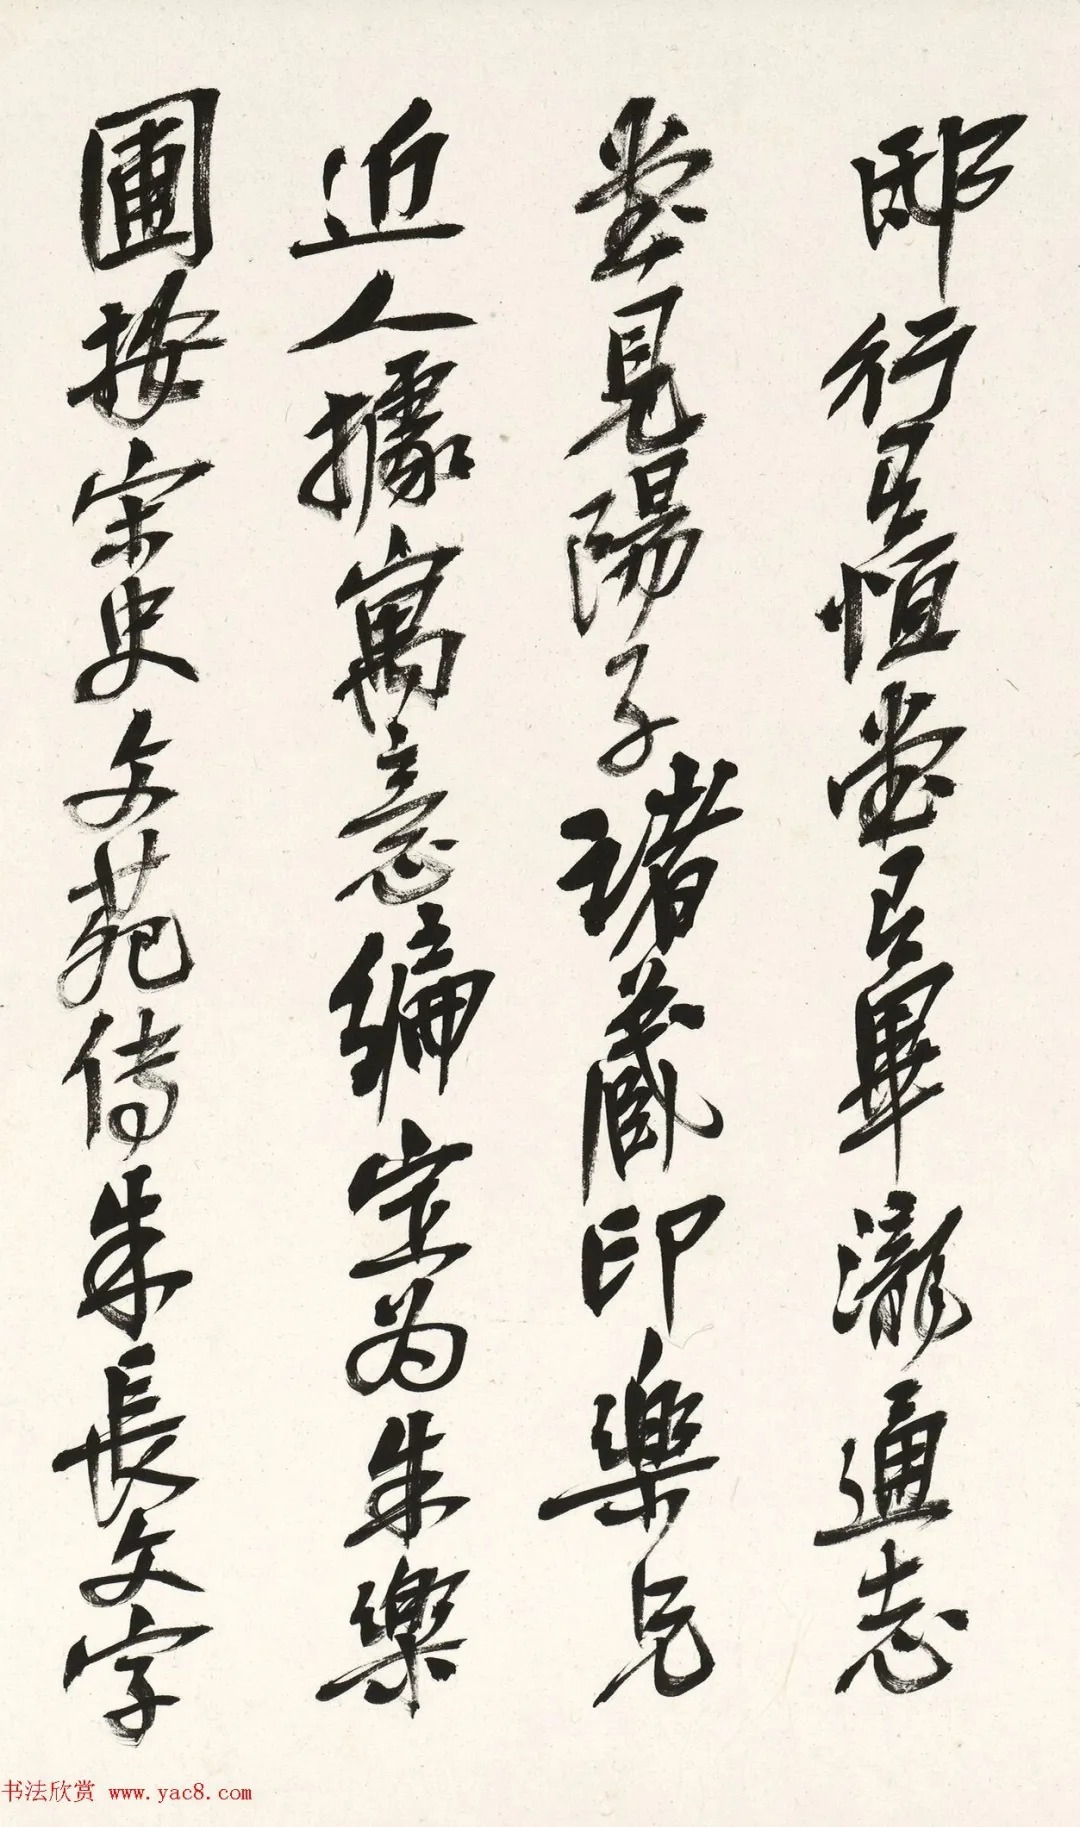 邸行有恒堂有畢瀧通志
堂見陽子藏印樂兄
近人據寓意編定为朱樂
圃按宋史文苑傳朱長文字
书法欣赏 www.yac8.com